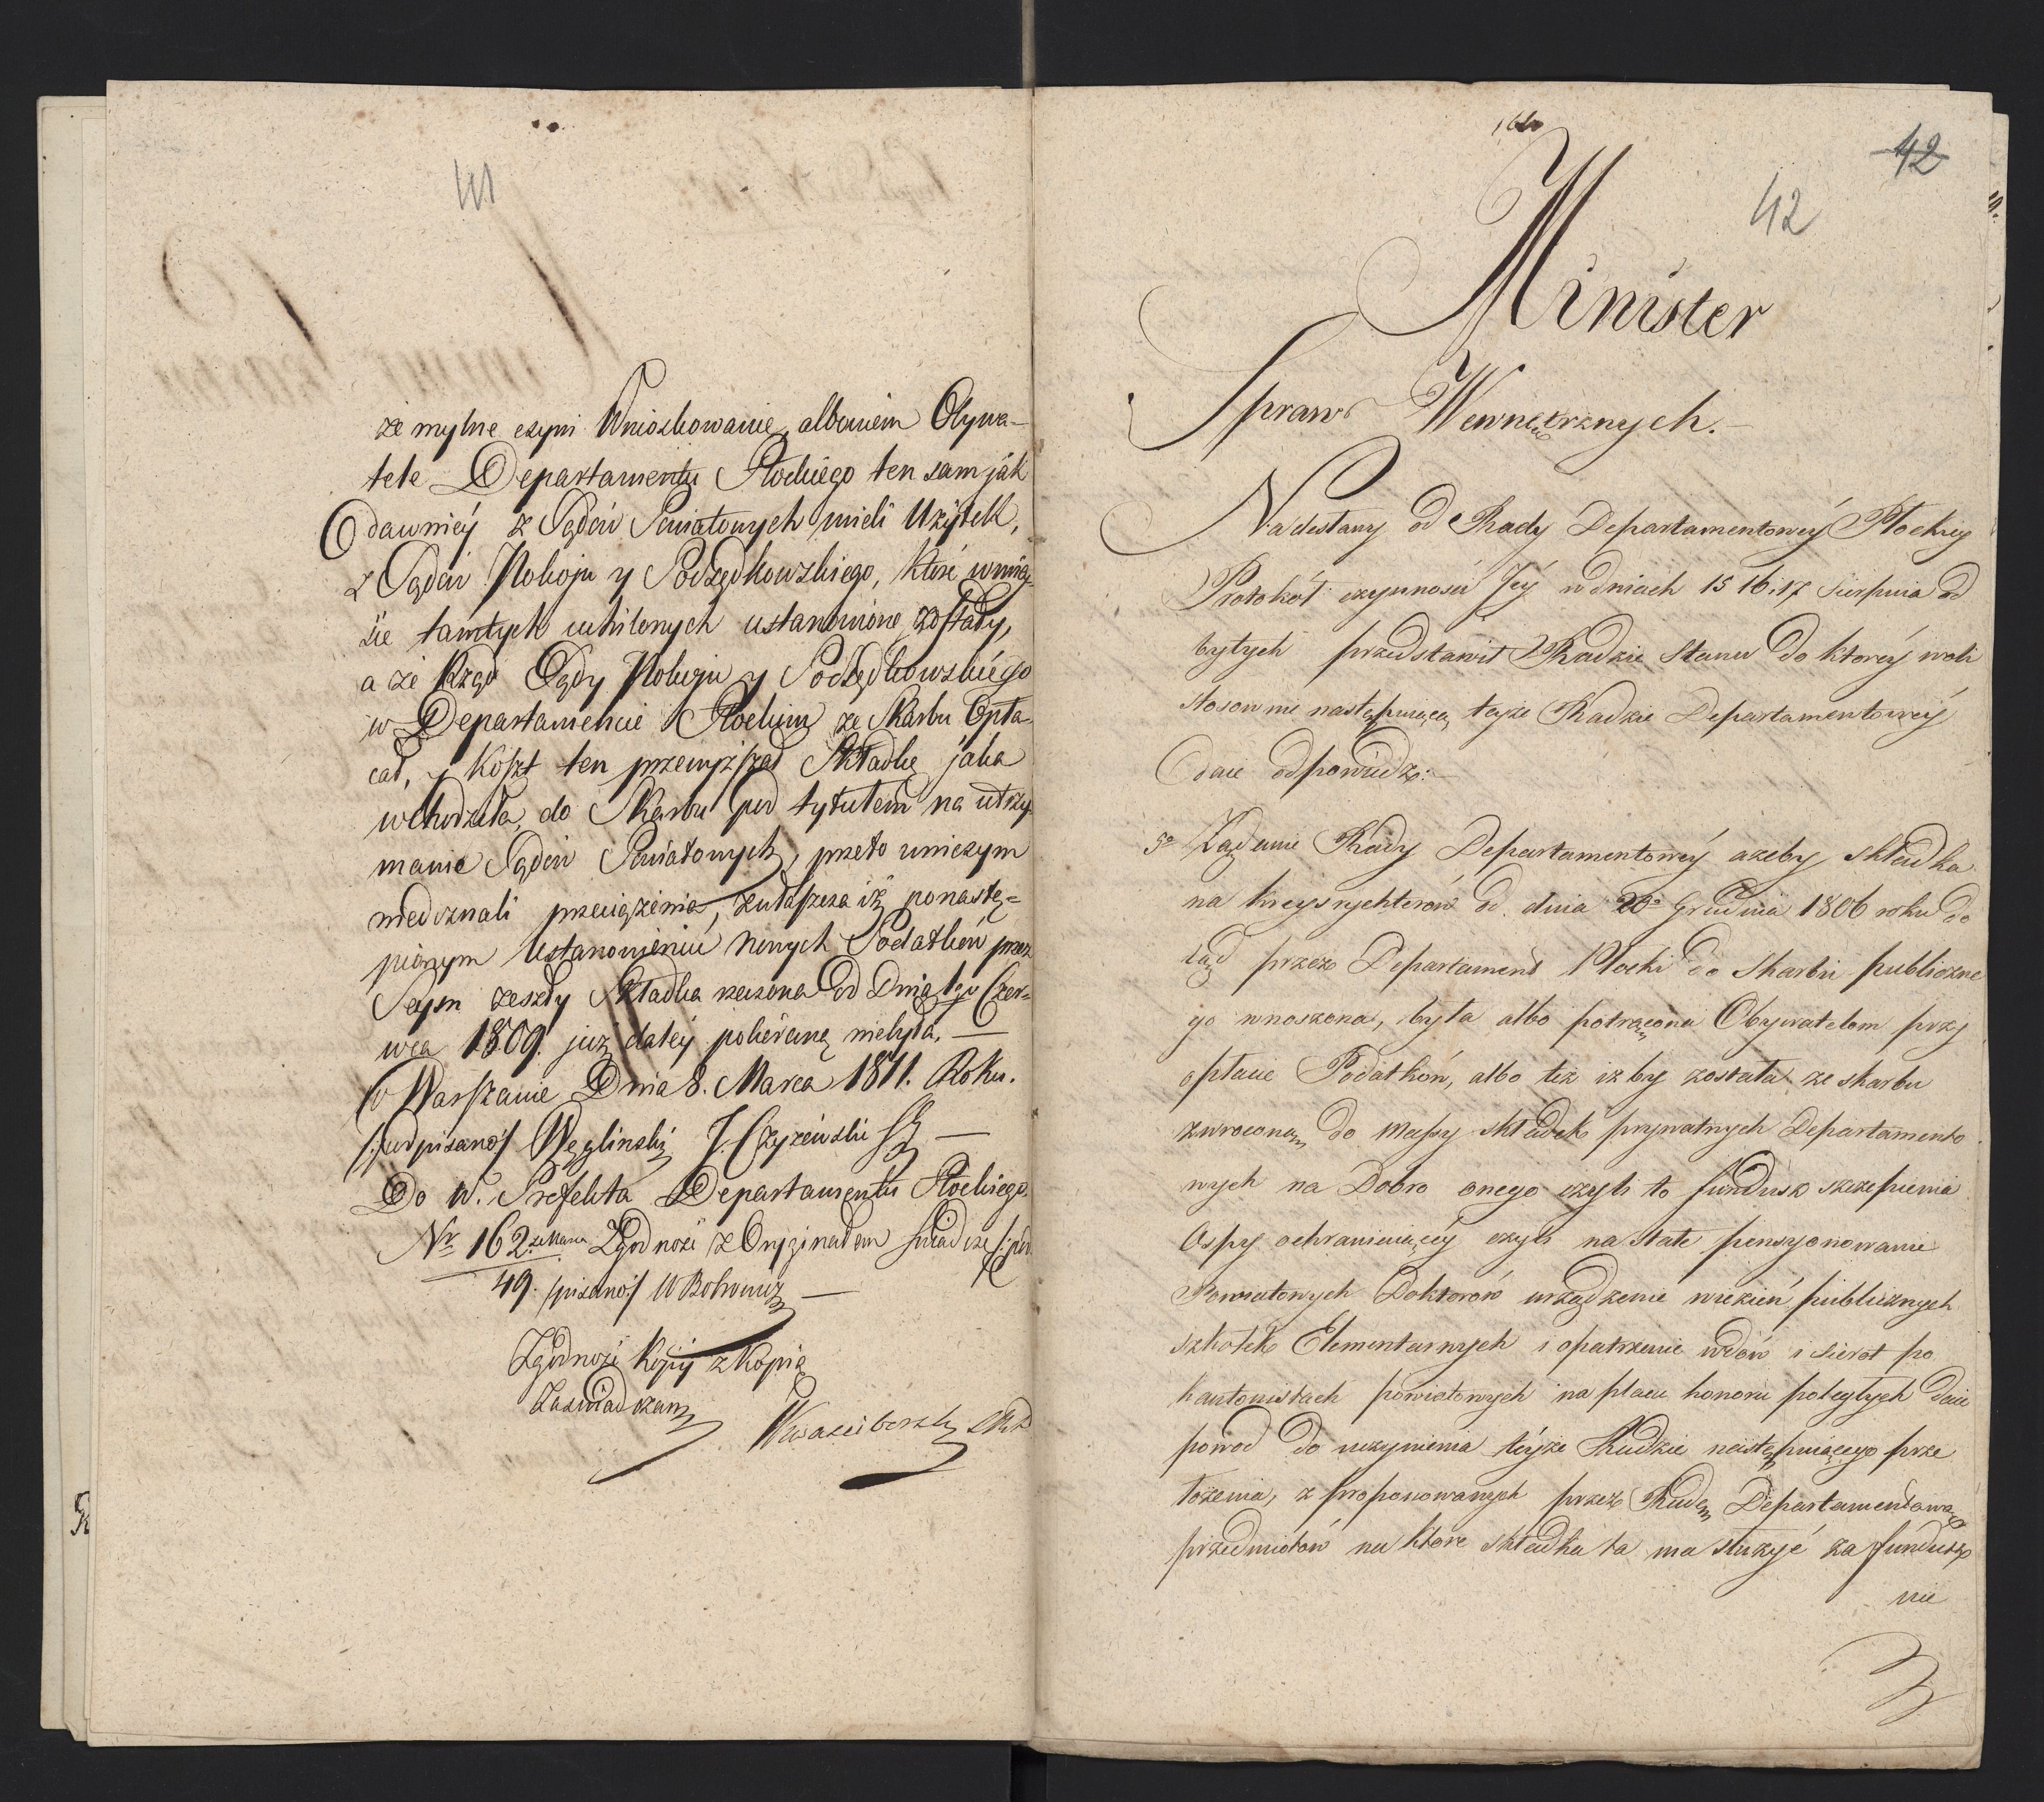 41
że mylne czyni Wnioskowanie, albowiem Obywa-
tele Departamentu Płockiego ten sam jak
dawniéj z Sądów Powiatowych mieli Użytek,
z Sądów Pokoju y Podsędkowskiego, które wmiéy-
sie tamtych uchilonych ustanowione zostały,
a że Rząd Sądy Pokoju y Podsędkowskiego
w Departamencie Płockim ze Skarbu Opła-
cał, y koszt ten przewyższał Składkę jaka
wchodziła, do Skarbu pod tytułem na utrzy-
manie Sądów Powiatowych, przeto wniczym
niedoznali przeciążenia, zwłaszcza iż ponastę-
pionym Ustanowieniu nowych Podatków przez
Seym zeszły Składka rzeczona Od Dnia 1go Czer-
wca 1809. już daléy pobieraną niebyła. —
w Warszawie Dnia 8. Marca 1811. Roku.
/:podpisano:/ Węglinski J. Czyżewski SJ —
Do W. Prefekta Departamentu Płockiego.
Nr 162. zMarca Zgodność z Oryginałem Świadczę /:pod
49. /pisano:/ W Bohrowicz —
Zgodność Kopij z Kopią
Zaświadczam
162
42
42
Minister
Spraw Wewnętrznych. —
Nadesłany od Rady Departamentowéy Płockiey
Protokół czynności Jéy w dniach 15 16. 17 Sierpnia od
bytych przedstawił Radzie Stanu do któréy woli
stosownie następuiącą teyże Radzie Departamentowéy
daie odpowiedź: —
5o Żądanie Rady Departamentowéy azeby składka
na kreysrychterów od dnia 20o Grudnia 1806 roku do
tąd przez Departament Płocki do Skarbu publiczne
go wnoszona, była albo potrącona Obywatelom przy
opłacie Podatków, albo też iżby została ze skarbu
zwroconą do Massy składek prywatnych Departamento
wych na Dobro onego czyli to fundusz szczepienia
Ospy ochraniaiącéy czyli na stałe pensyonowanie
Powiatowych Doktorów urządzenie więzień publicznych
szkołek Elementarnych i opatrzenie wdów i sierot po
kantonistach powiatowych na placu honoru poległych daie
powod do uczynienia téyże Radzie następuiącego prze
łożenia, z proponowanych przez Radę Departamentową
przedmiotów na które składka ta ma służyć za fundusz
nie